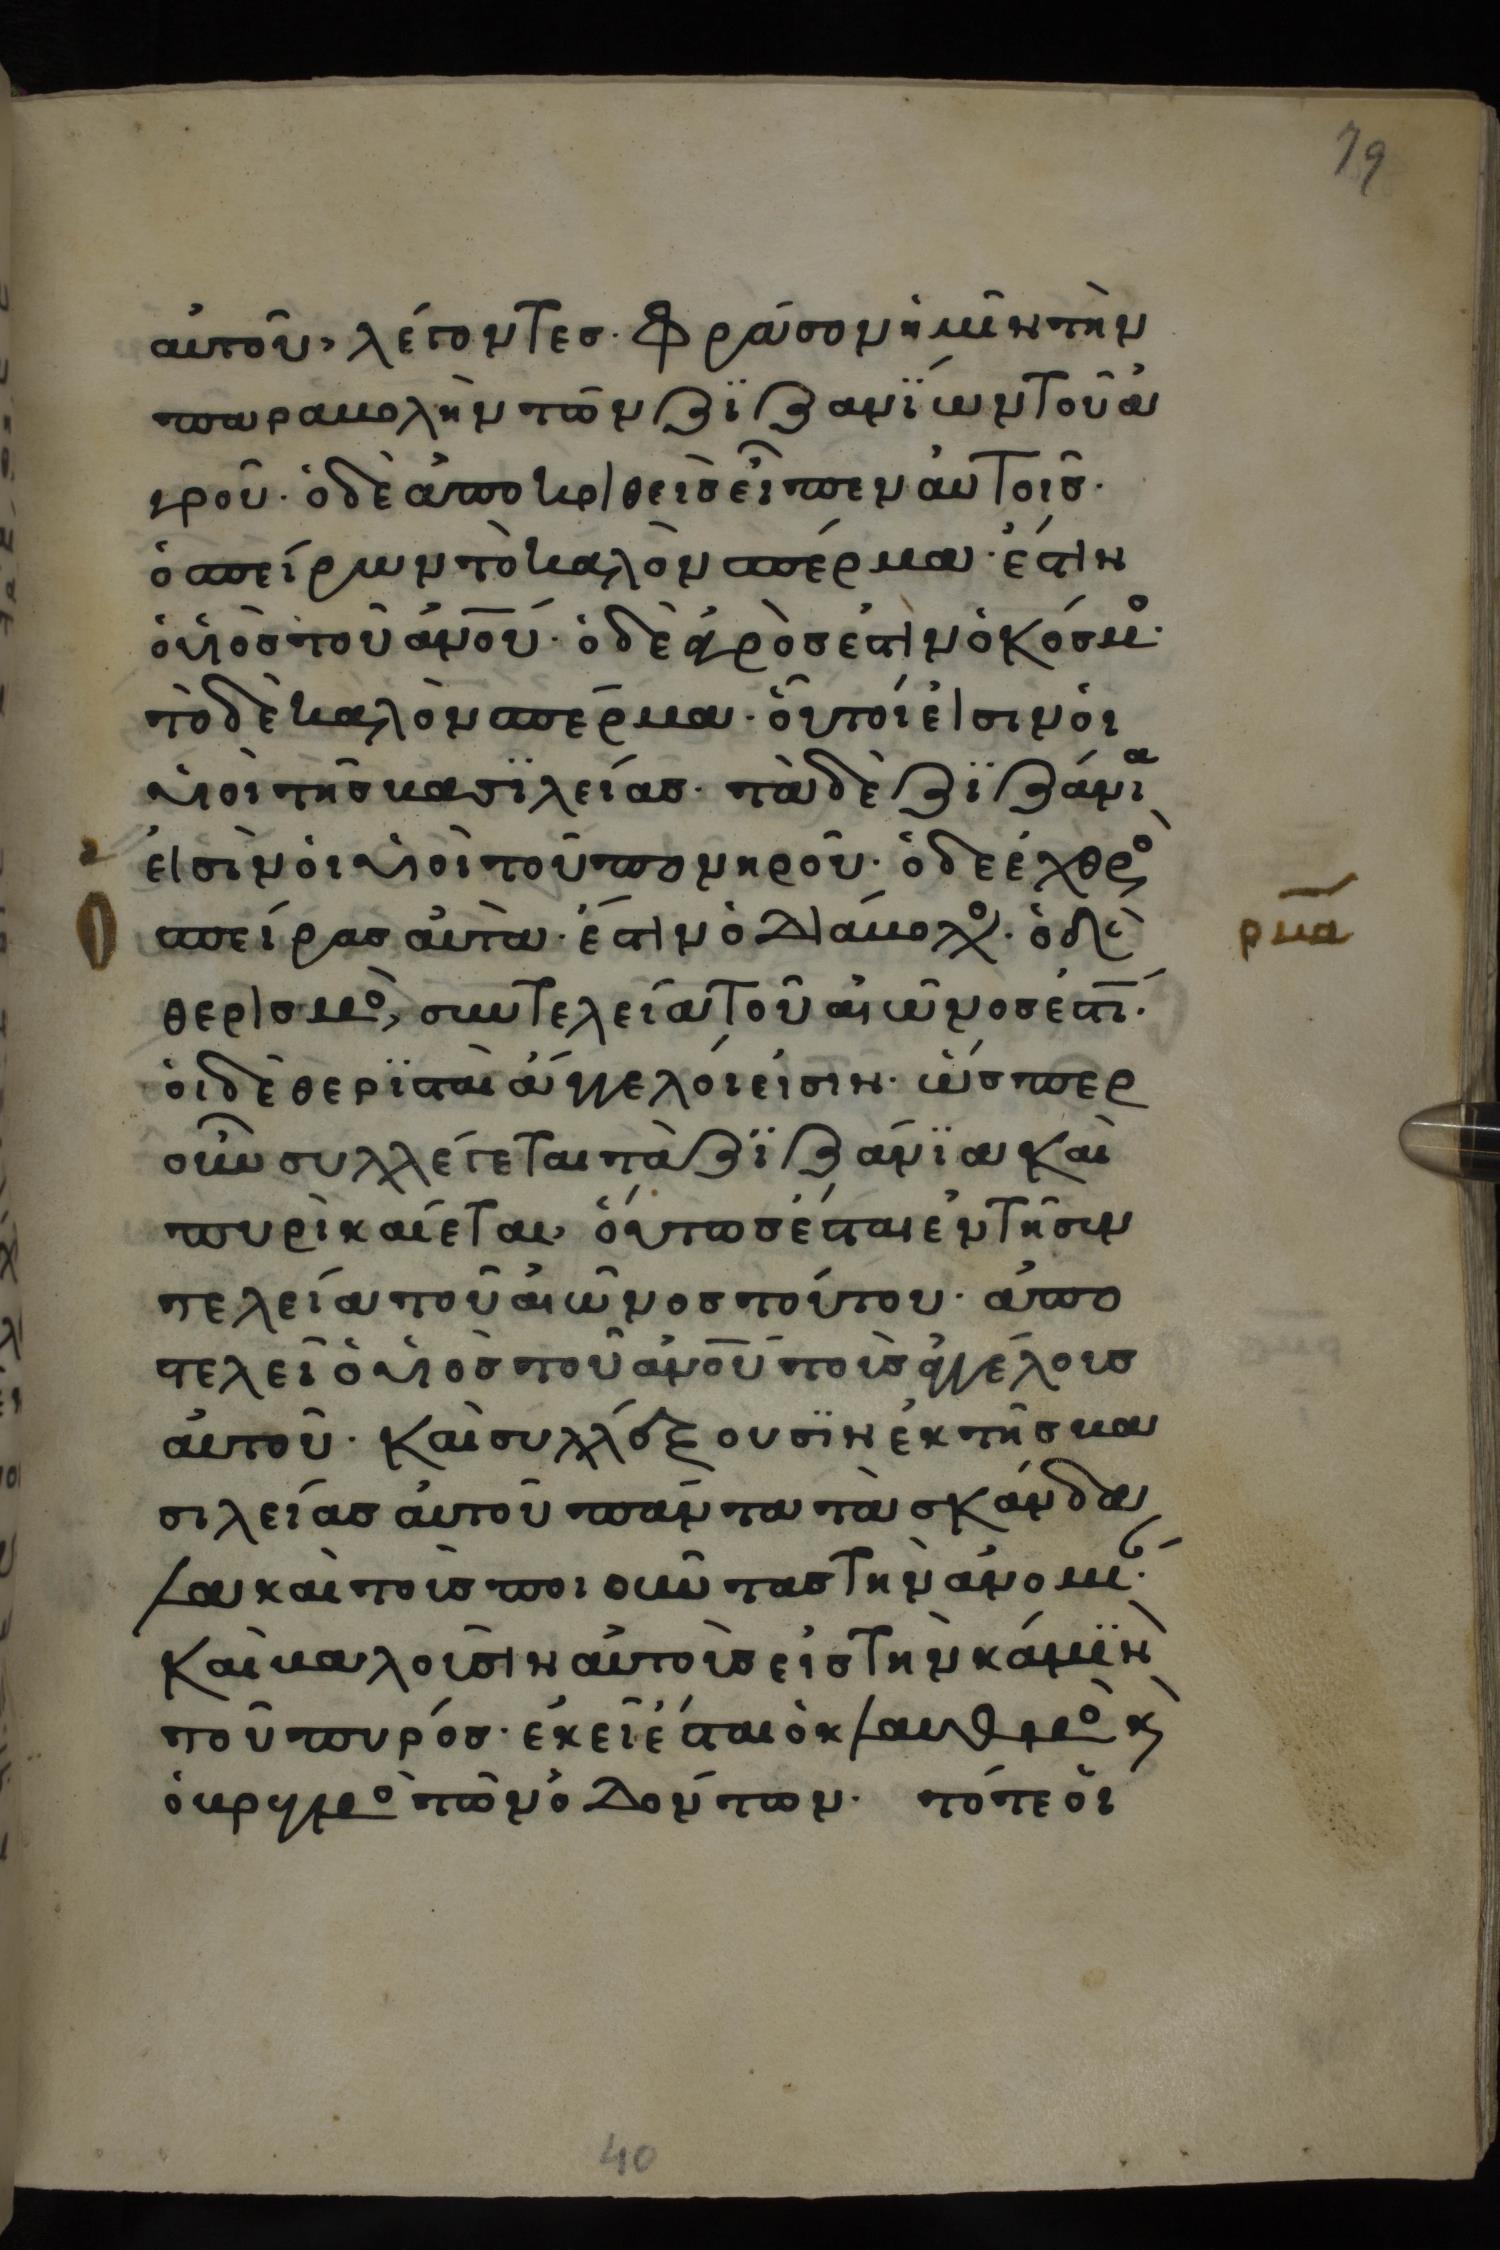 79
αὐτοῦ, λέγοντες· Φράσον ἡμῖν τὴν
παραβολὴν τῶν ζϊζανΐων τοῦ ἀ
γροῦ· ὁ δὲ ἀποκριθεὶς εἶπεν αὐτοῖς·
ὁ σπείρων τὸ καλὸν σπέρμα· ἐστὶν
ὁ υἱὸς τοῦ ἀνου· ὁ δὲ ἀγρὸς ἐστὶν ὁ κόσμο·
τὸ δὲ καλὸν σπέρμα· οὗτοί εἰσιν οἱ
υἱοὶ τῆς βασϊλείας· τὰ δὲ ζϊζάνια
εἰσὶν οἱ υἱοὶ τοῦ πονηροῦ· ὁ δὲ ἐχθρὸ
σπείρας αὐτὰ· ἐστὶν ὁ Διάβολο· ὁ δὲ
ρμα
θερισμὸ, συντελεία τοῦ αἰῶνος ἐστί·
οἱ δὲ θερϊσταὶ ἄγγελοί εἰσιν· ὥσπερ
οὖν συλλέγεται τὰ ζϊζάνϊα καὶ
πυρὶ καίεται, οὕτως ἔσται ἐν τῇ συν
τελεία τοῦ αἰῶνος τούτου· ἀπο
στελεῖ ὁ υἱὸς τοῦ ἀνου τοὺς ἀγγέλους
αὐτοῦ· καὶ συλλέξουσϊν ἐκ τῆς βα
σιλείας αὐτοῦ πάντα τὰ σκάνδα
λα καὶ τοὺς ποιοῦντας τὴν ἀνομί·
καὶ βαλοῦσιν αὐτοὺς εἰς τὴν κάμϊν
τοῦ πυρός· ἐκεῖ ἔσται ὁ κλαυθμὸ κ
ὁ βρυγμὸ τῶν ὀδόντων· τότε οἱ
40